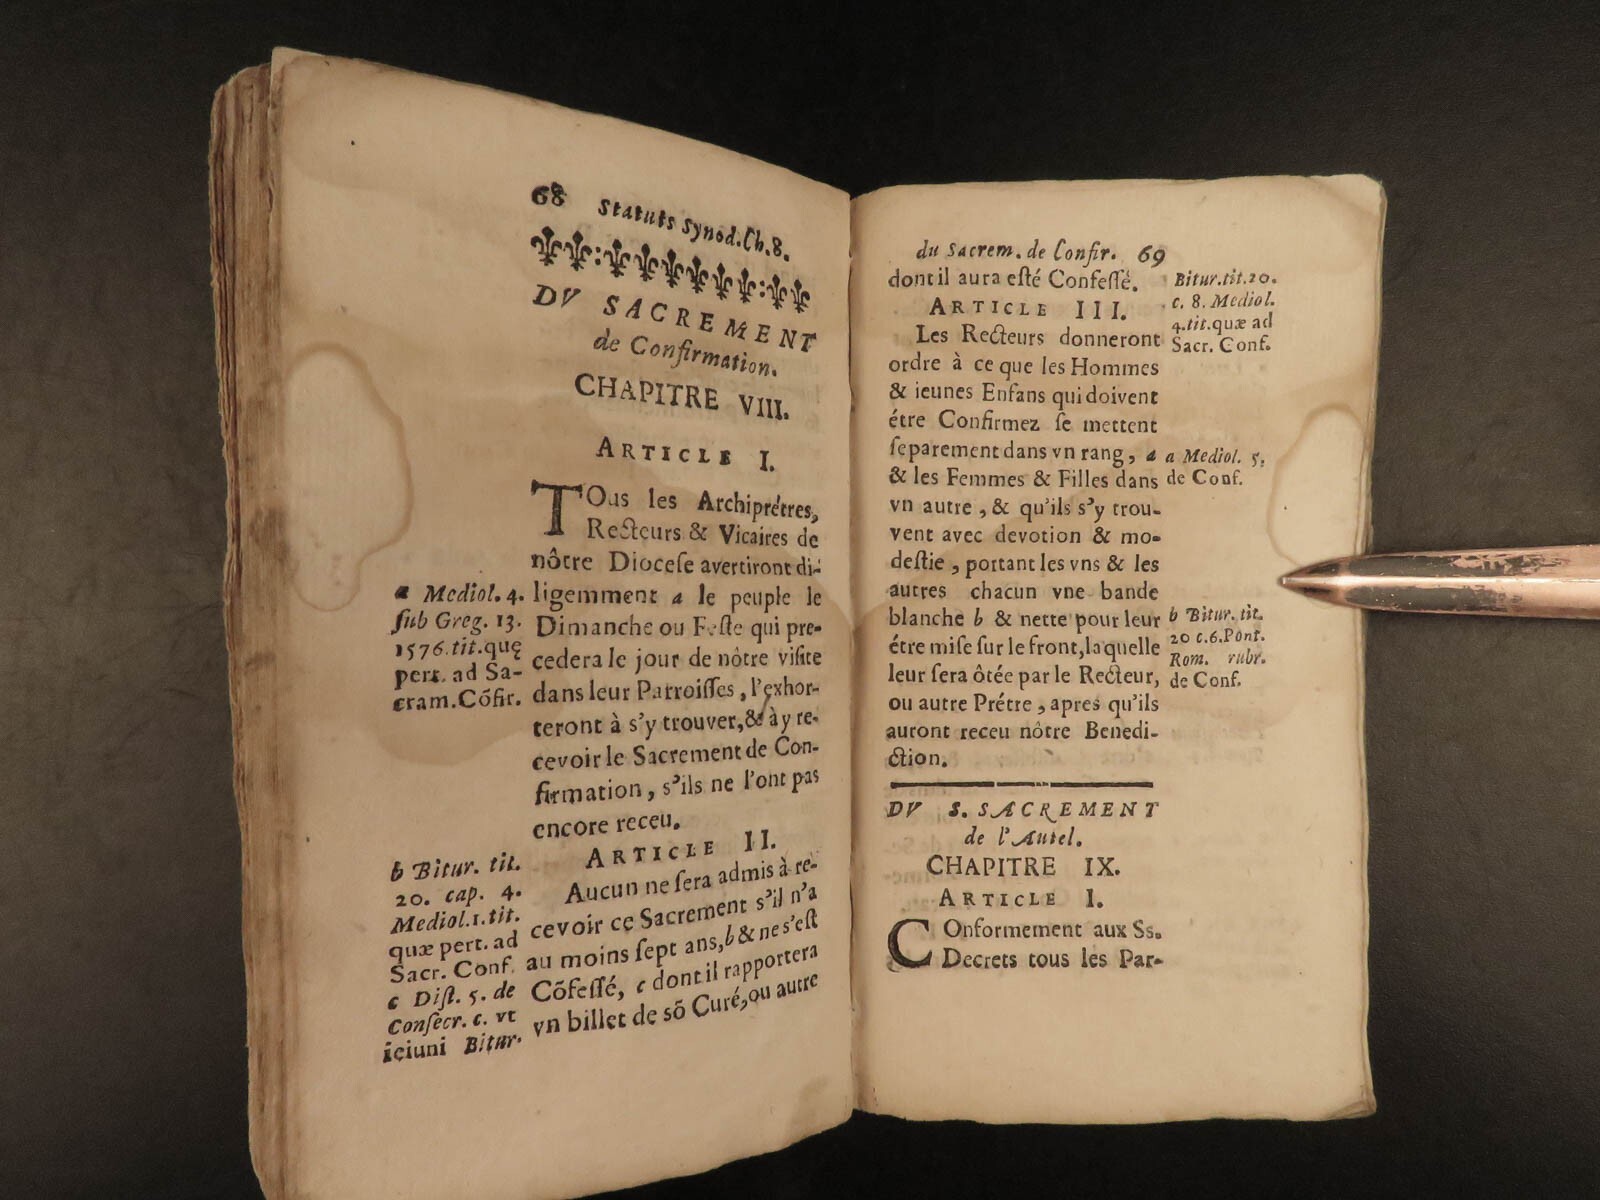 68 Statuts Synod. Ch. 8.
DV SACREMENT
de Confirmation.
CHAPITRE VIII.
ARTICLE I.
TOus les Archiprétres,
Recteurs & Vicaires de
nôtre Diocese avertiront di-
ligemment a le peuple le
Dimanche ou Feste qui pre-
cedera le jour de nôtre visite
dans leur Parroisses, l'exhor-
teront à s'y trouver, & à y re-
cevoir le Sacrement de Con-
firmation, s'ils ne l'ont pas
encore receu.
ARTICLE II.
Aucun ne sera admis à re-
cevoir ce Sacrement s'il n'a
au moins sept ans, b & ne s'est
Cõfessé, c dont il rapportera
vn billet de sõ Curé, ou autre
a Mediol. 4.
sub Greg. 13.
1576. tit. quę
pert. ad Sa-
cram. Cõfir.
b Bitur. tit.
20. cap. 4.
Mediol. 1. tit.
quæ pert. ad
Sacr. Conf.
c Dist. 5. de
Consecr. c. vt
ieiuni Bitur.
du Sacrem. de Confir. 69
dont il aura esté Confessé.
ARTICLE III.
Les Recteurs donneront
ordre à ce que les Hommes
& ieunes Enfans qui doivent
étre Confirmez se mettent
separement dans vn rang, a
& les Femmes & Filles dans
vn autre, & qu'ils s'y trou-
vent avec devotion & mo-
destie, portant les vns & les
autres chacun vne bande
blanche b & nette pour leur
étre mise sur le front, laquelle
leur sera ôtée par le Recteur,
ou autre Prétre, apres qu'ils
auront receu nôtre Benedi-
ction.
Bitur. tit. 20.
c. 8. Mediol.
4. tit. quæ ad
Sacr. Conf.
a Mediol. 5.
de Conf.
b Bitur. tit.
20 c. 6. Pont.
Rom. rubr.
de Conf.
DV S. SACREMENT
de l'Autel.
CHAPITRE IX.
ARTICLE I.
COnformement aux Ss.
Decrets tous les Par-